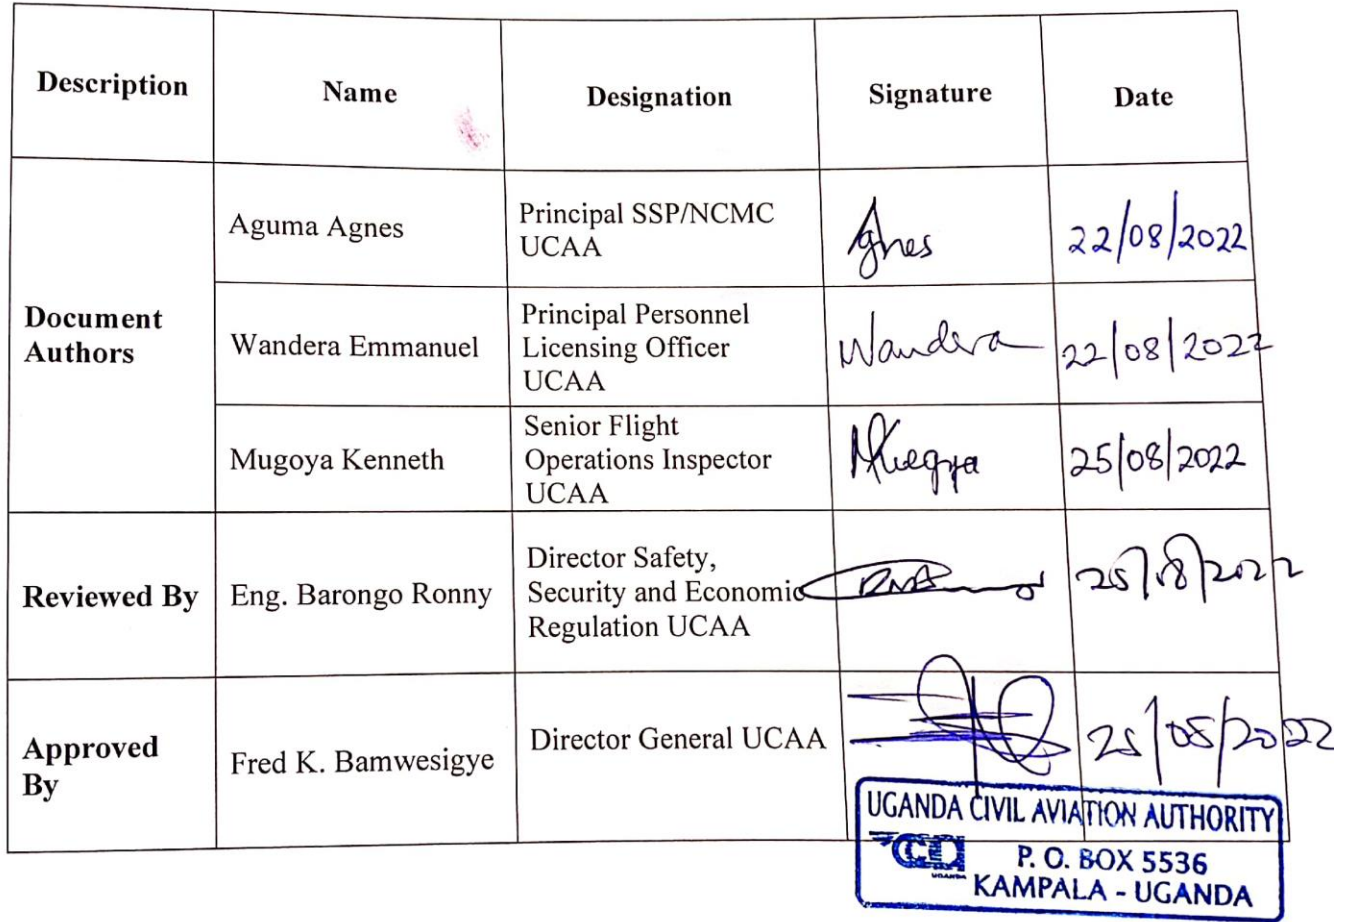 Description Name Designation Signature Date
Document
Authors
Aguma Agnes
Principal SSP/NCMC
UCAA
Agnes
22/08/2022
Wandera Emmanuel
Principal Personnel
Licensing Officer
UCAA
Wandera
22/08/2022
Mugoya Kenneth
Senior Flight
Operations Inspector
UCAA
25/08/2022
Reviewed By
Eng. Barongo Ronny
Director Safety,
Security and Economic
Regulation UCAA
25/08/2022
Approved
By
Fred K. Bamwesigye
Director General UCAA
UGANDA CIVIL AVIATION AUTHORITY
P. O. BOX 5536
KAMPALA - UGANDA